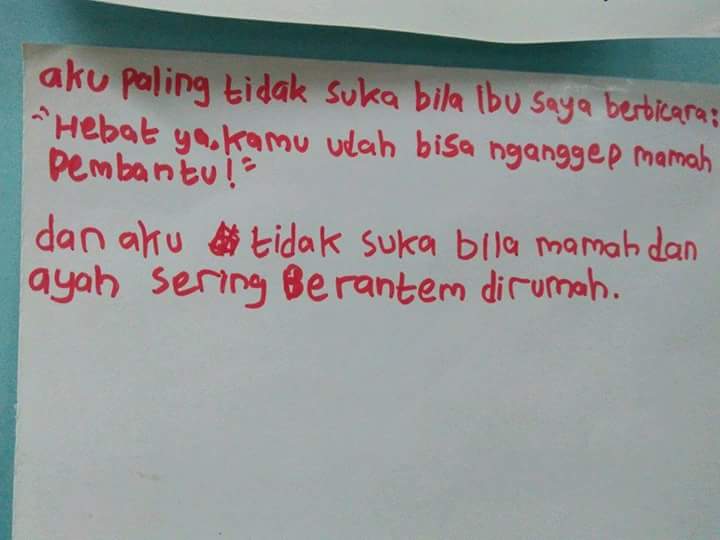 aku paling tidak suka bila ibu saya berbicara:
"Hebat ya, kamu udah bisa nganggep mamah
pembantu!"
dan aku tidak suka bila mamah dan
ayah sering Berantem dirumah.